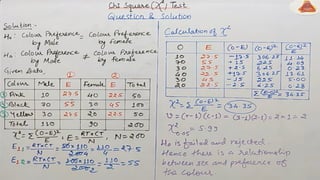 Chi Square (X²) Test
Question & Solution
Solution -
H₀: Colour Preference = Colour Preference
by Male by Female
Hₐ: Colour Preference ≠ Colour Preference
by Male by Female
Given Data,
① ②
Colour Male E Female E Total
① Pink 10 27.5 40 22.5 50
② Black 70 55 30 45 100
③ Yellow 30 27.5 20 22.5 50
Total 110 90 200
X² = Σ(O-E)²/E, E = RT×CT/N, N = 200
E₁₁ = RT×CT/N = 50×110/200 = 110/4 = 27.5
E₁₂ = RT×CT/N = 100×110/200 = 110/2 = 55
Calculation of X²
O E (O-E) (O-E)² (O-E)²/E
10 27.5 -17.5 306.25 11.14
70 55 15 225 4.09
30 27.5 2.5 6.25 0.23
40 22.5 +17.5 306.25 13.61
30 45 -15 225 5.00
20 22.5 -2.5 6.25 0.28
X² = Σ(O-E)²/E =
V = (r-1)(c-1) = (3-1)(2-1) = 2×1 = 2
X²0.05 = 5.99
H₀ is failed and rejected
Hence there is a relationship
between sex and preference of
the colour